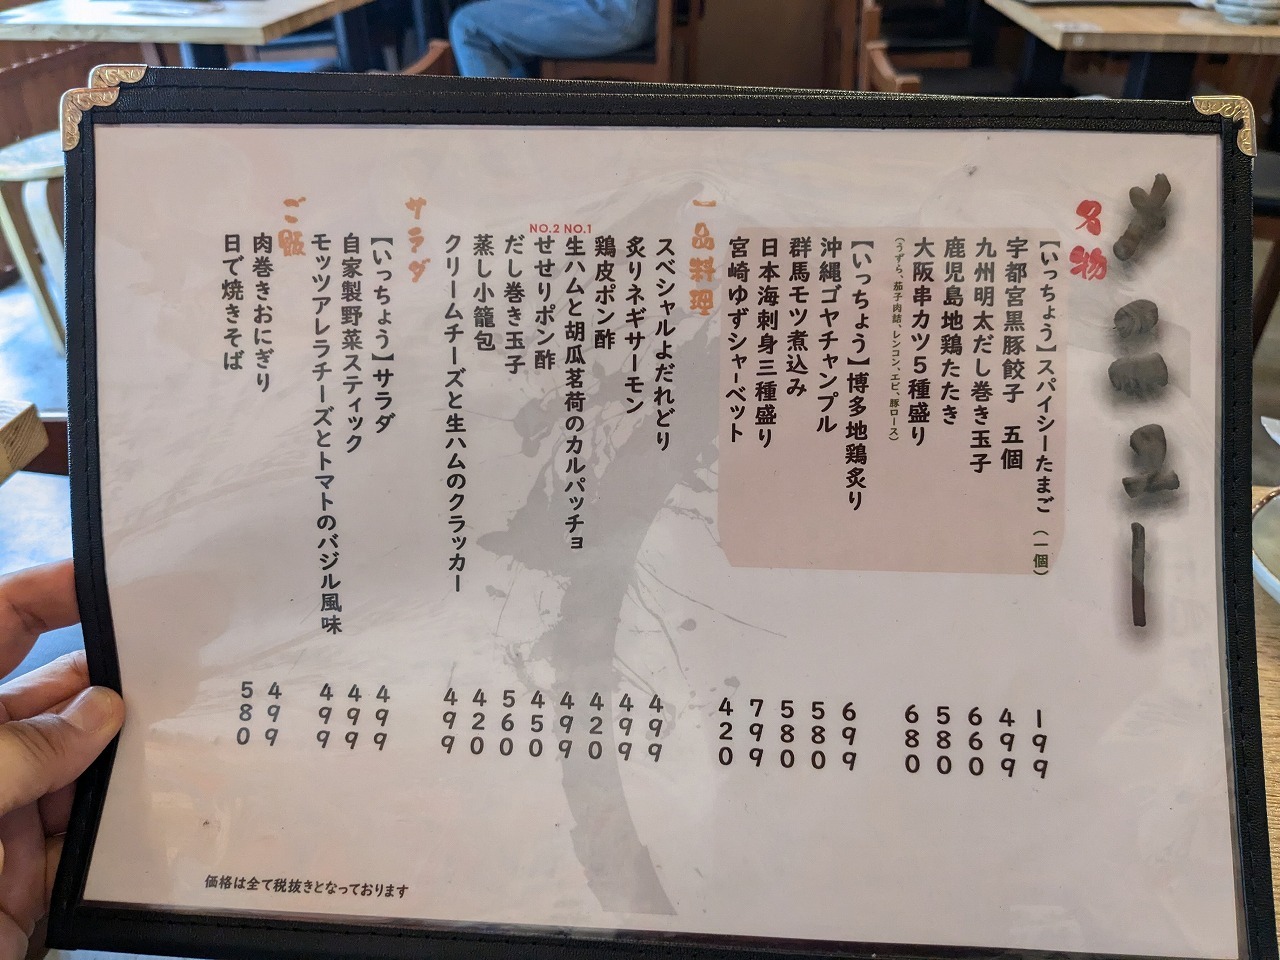 メニュー
名物
【いっちょう】スパイシーたまご(一個) 199
宇都宮黒豚餃子 五個 499
九州明太だし巻き玉子 660
鹿児島地鶏たたき 580
大阪串カツ5種盛り 680
(うずら、茄子肉詰、レンコン、エビ、豚ロース)
【いっちょう】博多地鶏炙り 699
沖縄ゴヤチャンプル 580
群馬モツ煮込み 580
日本海刺身三種盛り 799
宮崎ゆずシャーベット 420
一品料理
スペシャルよだれどり 499
炙りネギサーモン 499
鶏皮ポン酢 420
NO.1
生ハムと胡瓜茗荷のカルパッチョ 499
NO.2
せせりポン酢 450
だし巻き玉子 560
蒸し小籠包 420
クリームチーズと生ハムのクラッカー 499
サラダ
【いっちょう】サラダ 499
自家製野菜スティック 499
モッツアレラチーズとトマトのバジル風味 499
ご飯
肉巻きおにぎり 499
日で焼きそば 580
価格は全て税抜きとなっております